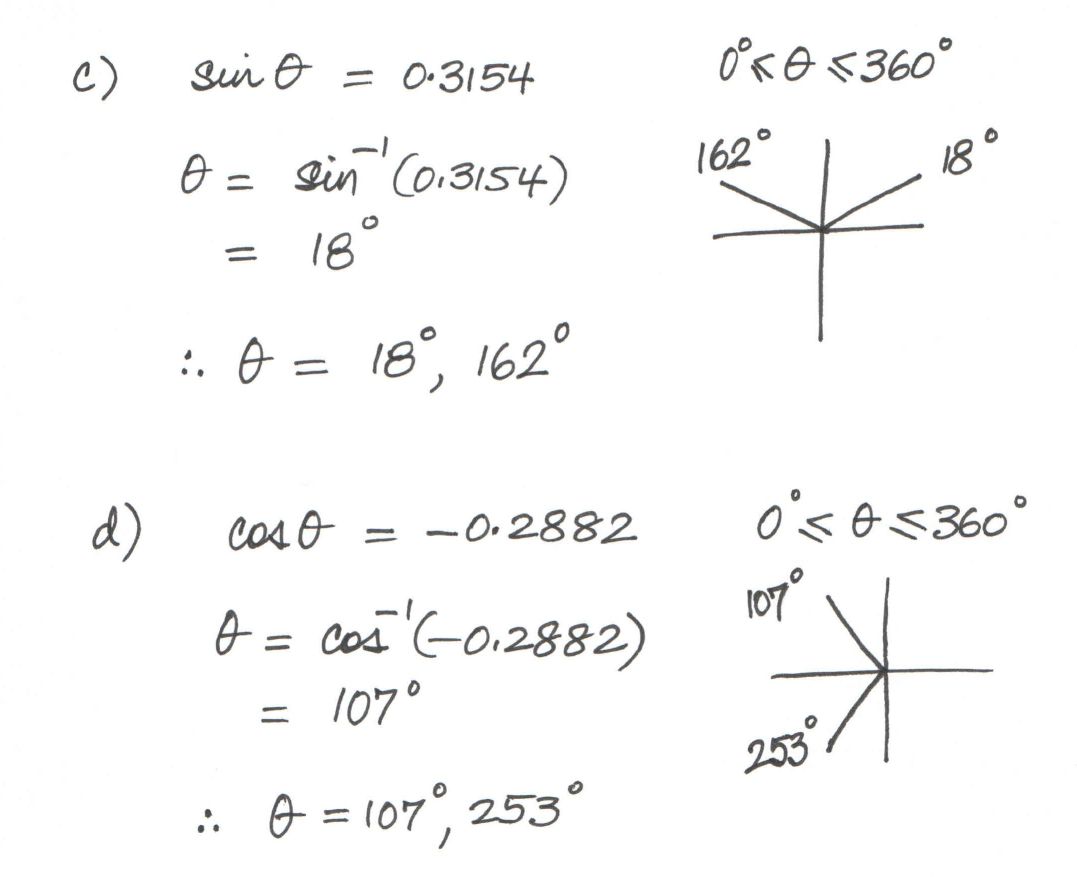 c) sin θ = 0·3154 0° ≤ θ ≤ 360°
θ = sin⁻¹(0·3154)
= 18°
162° 18°
∴ θ = 18°, 162°
d) cos θ = -0·2882 0° ≤ θ ≤ 360°
θ = cos⁻¹(-0·2882)
= 107°
107°
253°
∴ θ = 107°, 253°